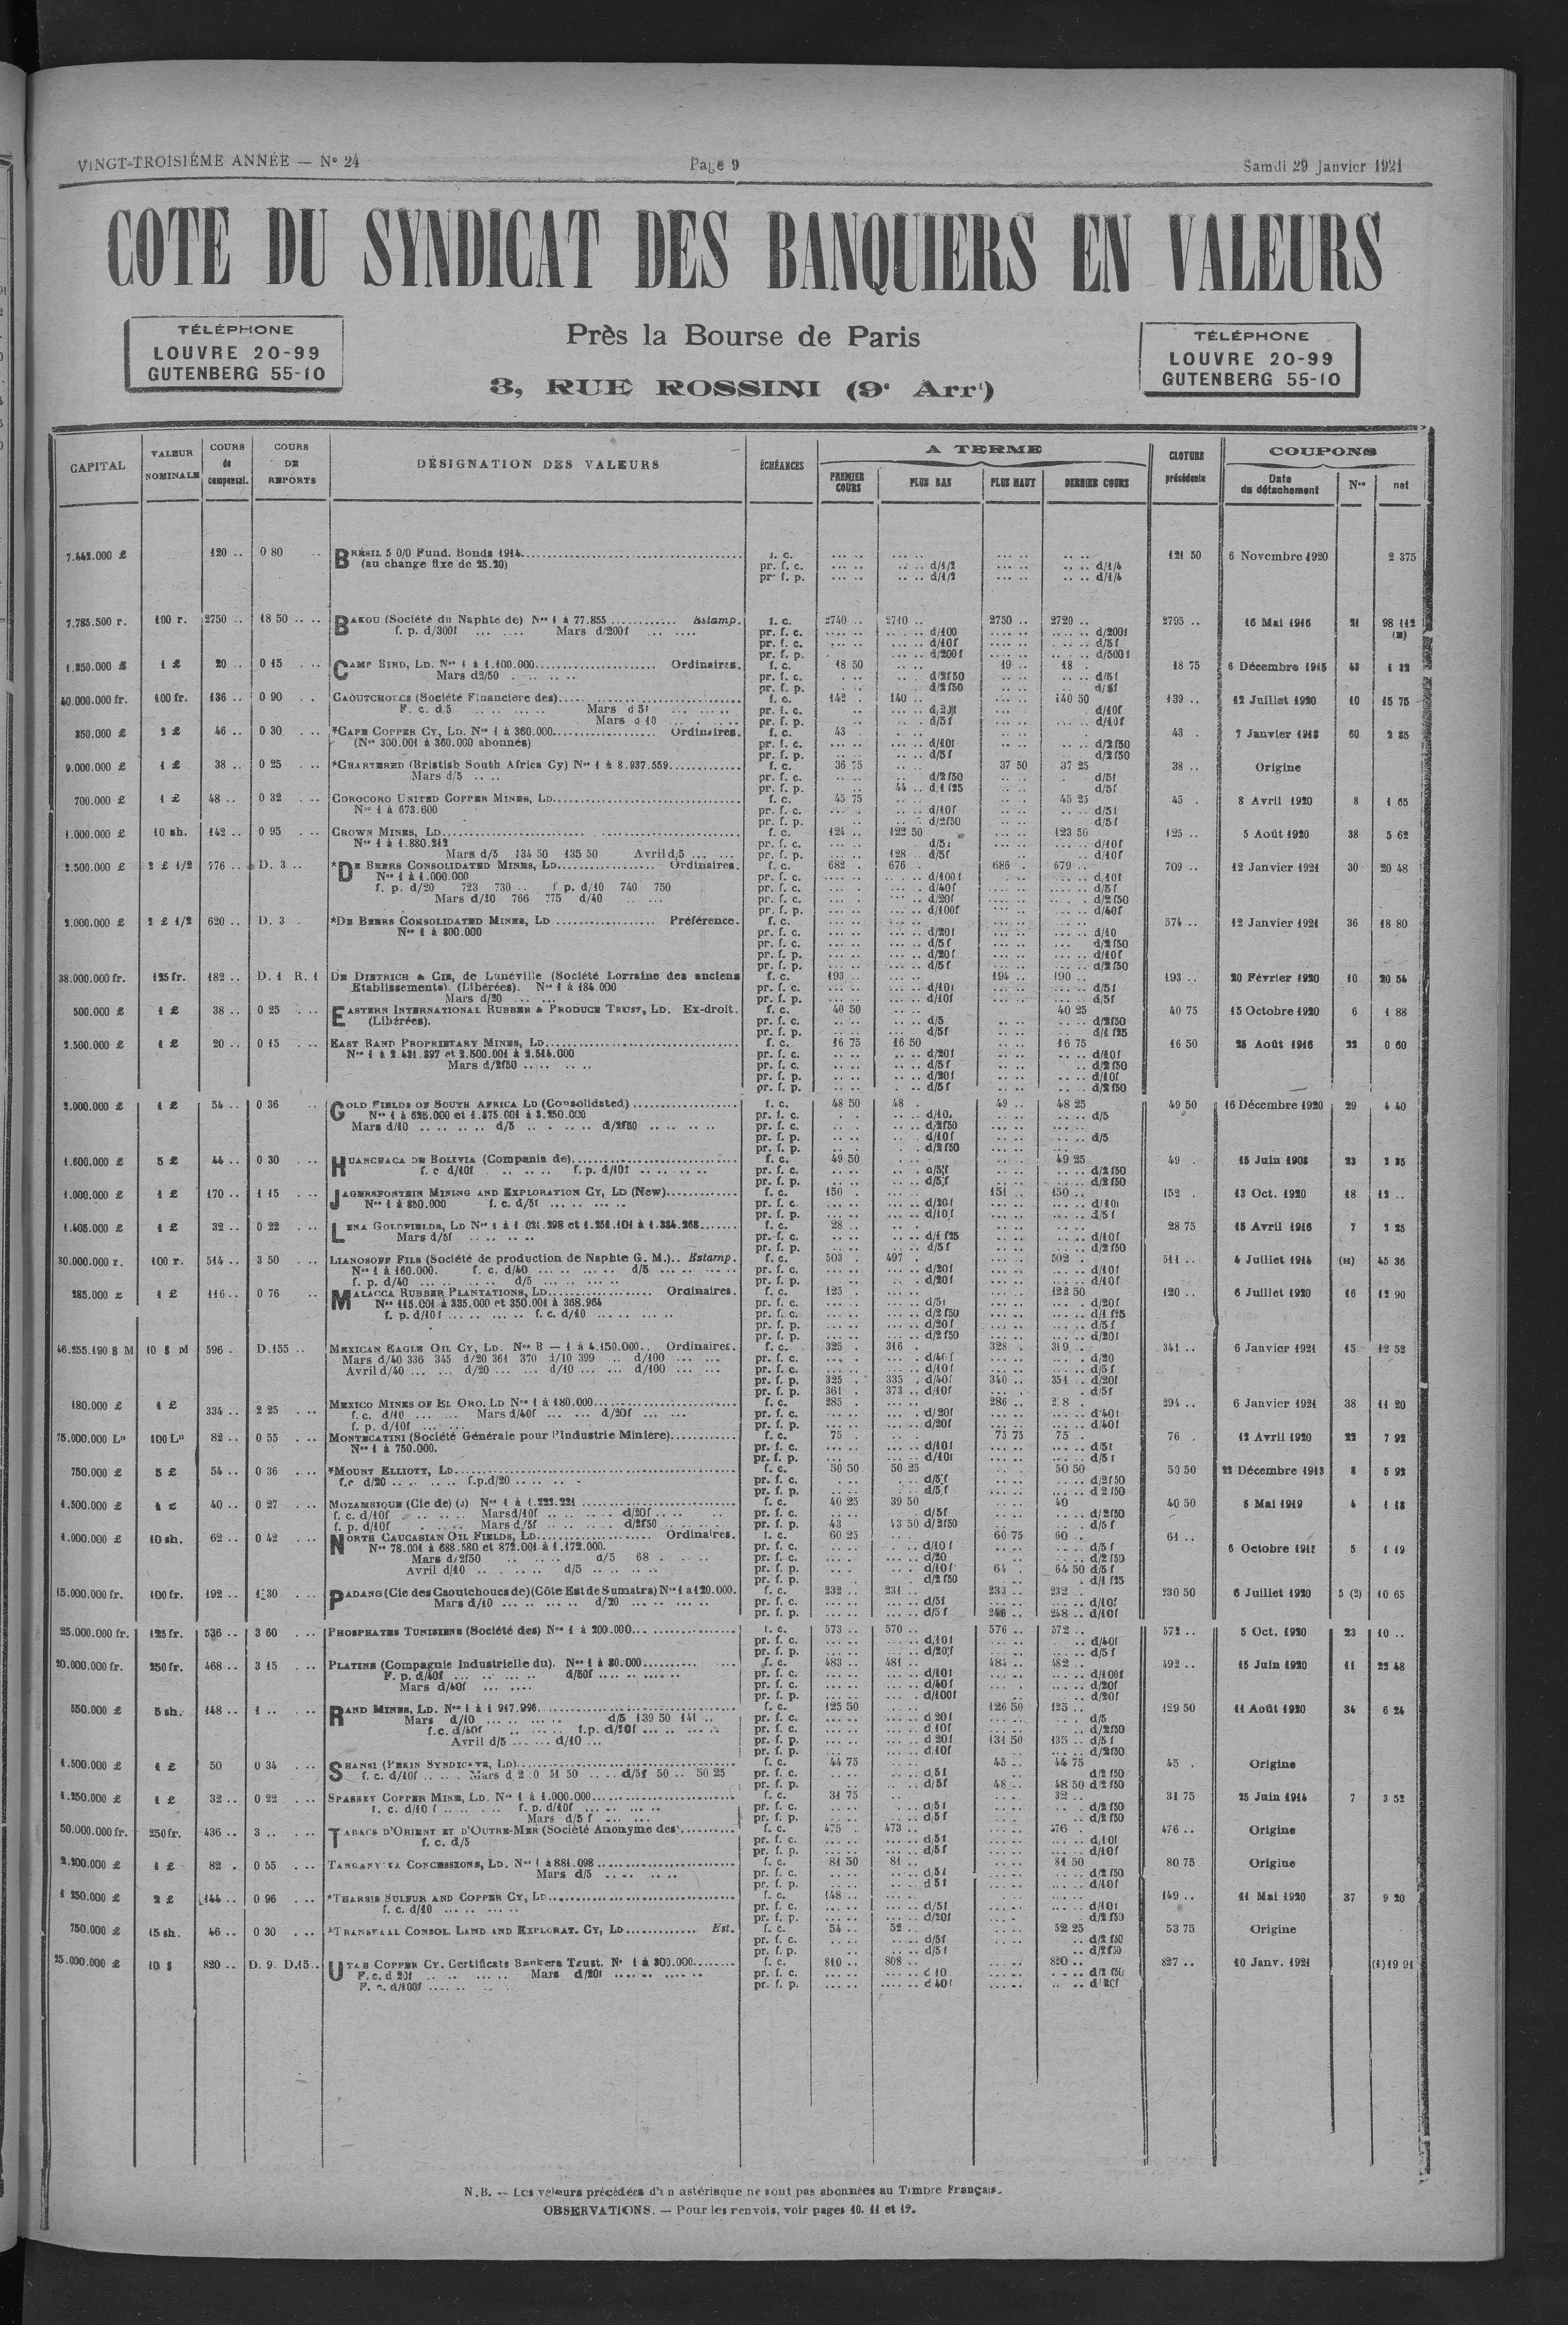 VINGT-TROISIÈME ANNÉE — N° 24 Page 9 Samdi 29 Janvier 1921
COTE DU SYNDICAT DES BANQUIERS EN VALEURS
TÉLÉPHONE
LOUVRE 20-99
GUTENBERG 55-10
Près la Bourse de Paris
3, RUE ROSSINI (9e Arrt)
TÉLÉPHONE
LOUVRE 20-99
GUTENBERG 55-10
CAPITAL VALEUR NOMINALE COURS de compensat. COURS DE REPORTS DÉSIGNATION DES VALEURS ÉCHÉANCES A TERME PREMIER COURS PLUS BAS PLUS HAUT DERNIER COURS CLOTURE précédente COUPONS Date du détachement Nos net
7.442.000 £ 120 .. 0 80 BRÉSIL 5 0/0 Fund. Bonds 1914 f. c. 121 50 6 Novembre 1920 2 375
(au change fixe de 25.20) pr. f. c. d/1/2 d/1/4
pr. f. p. d/1/2 d/1/4
7.785.500 r. 100 r. 2750 .. 18 50 BAKOU (Société du Naphte de) Nos 1 à 77.855 Estamp. f. c. 2740 .. 2710 .. 2750 .. 2720 .. 2795 .. 16 Mai 1916 21 98 112
f. p. d/300f Mars d/200f pr. f. c. d/100 d/200f
pr. f. c. d/10f d/5f
pr. f. p. d/200f d/500f
1.250.000 £ 1 £ 20 .. 0 15 CAMP BIRD, LD. Nos 1 à 1.100.000 Ordinaires. f. c. 18 50 19 .. 18 . 18 75 6 Décembre 1915 43 1 32
Mars d2/50 pr. f. c. d/2f50 d/5f
pr. f. p. d/2f50 d/5f
40.000.000 fr. 100 fr. 136 .. 0 90 CAOUTCHOUCS (Société Financière des) f. c. 142 . 140 .. 140 50 139 .. 12 Juillet 1920 10 15 75
F. c. d.5 Mars d 5f pr. f. c. d/10f
Mars d 10 pr. f. p. d/5f d/10f
350.000 £ 2 £ 46 .. 0 30 *CAPE COPPER CY, LD. Nos 1 à 360.000 Ordinaires. f. c. 43 . 43 . 7 Janvier 1913 60 2 85
(Nos 300.001 à 360.000 abonnés) pr. f. c. d/10f d/2f50
pr. f. p. d/5f d/2f50
9.000.000 £ 1 £ 38 .. 0 25 *CHARTERED (Bristish South Africa Cy) Nos 1 à 8.937.559 f. c. 36 75 37 50 37 25 38 .. Origine
Mars d/5 pr. f. c. d/2f50 d/5f
pr. f. p. 44 .. d/1f25 d/5f
700.000 £ 1 £ 48 .. 0 32 COROCORO UNITED COPPER MINES, LD f. c. 45 75 45 25 45 . 8 Avril 1920 8 1 65
Nos 1 à 673.600 pr. f. c. d/10f d/5f
pr. f. p. d/2f50 d/5f
1.000.000 £ 10 sh. 142 .. 0 95 CROWN MINES, LD f. c. 124 .. 122 50 123 50 125 .. 5 Août 1920 38 5 62
Nos 1 à 1.880.212 pr. f. c. d/5f d/10f
Mars d/5 134 50 135 50 Avril d/5 pr. f. p. 128 . d/5f d/10f
2.500.000 £ 2 £ 1/2 776 .. D. 3 .. *DE BEERS CONSOLIDATED MINES, LD Ordinaires. f. c. 682 . 676 . 686 . 679 .. 709 .. 12 Janvier 1921 30 20 48
Nos 1 à 1.000.000 pr. f. c. d/100f d/10f
f. p. d/20 723 730 .. f p. d/10 740 750 pr. f. c. d/40f d/5f
Mars d/10 766 775 d/40 pr. f. p. d/20f d/2f50
pr. f. p. d/100f d/40f
2.000.000 £ 2 £ 1/2 620 .. D. 3 *DE BEERS CONSOLIDATED MINES, LD Préférence. f. c. 574 .. 12 Janvier 1921 36 18 80
Nos 1 à 800.000 pr. f. c. d/20f d/10
pr. f. c. d/5f d/2f50
pr. f. p. d/20f d/10f
pr. f. p. d/5f d/2f50
38.000.000 fr. 125 fr. 182 .. D. 1 R. 1 DE DIETRICH & CIE, de Lunéville (Société Lorraine des anciens f. c. 193 .. 194 .. 190 .. 193 .. 20 Février 1920 10 20 54
Etablissements). (Libérées). Nos 1 à 184.000 pr. f. c. d/10f d/5f
Mars d/20 pr. f. p. d/10f d/5f
500.000 £ 1 £ 38 .. 0 25 EASTERN INTERNATIONAL RUBBER & PRODUCE TRUST, LD. Ex-droit. f. c. 40 50 40 25 40 75 15 Octobre 1920 6 1 88
(Libérées). pr. f. c. d/5 d/2f50
pr. f. p. d/5f d/1f25
2.500.000 £ 1 £ 20 .. 0 15 EAST RAND PROPRIETARY MINES, LD f. c. 16 75 16 50 16 75 16 50 25 Août 1916 22 0 60
Nos 1 à 2.431.397 et 2.500.001 à 2.514.000 pr. f. c. d/20f d/10f
Mars d/2f50 pr. f. c. d/5f d/2f50
pr. f. p. d/20f d/10f
pr. f. p. d/5f d/2f50
2.000.000 £ 1 £ 54 .. 0 36 GOLD FIELDS OF SOUTH AFRICA LD (Consolidated) f. c. 48 50 48 . 49 .. 48 25 49 50 16 Décembre 1920 29 4 40
Nos 1 à 625.000 et 1.375.001 à 3.250.000 pr. f. c. d/10. d/5
Mars d/10 d/5 d/2f50 pr. f. c. d/2f50
pr. f. p. d/10f d/5
pr. f. p. d/2f50
1.600.000 £ 5 £ 44 .. 0 30 HUANCHACA DE BOLIVIA (Compania de) f. c. 49 50 49 25 49 . 15 Juin 1908 23 2 85
f. c d/10f f. p. d/10f pr. f. c. d/5f d/2f50
pr. f. p. d/5f d/2f50
1.000.000 £ 1 £ 170 .. 1 15 JAGERSFONTEIN MINING AND EXPLORATION CY, LD (New) f. c. 150 . 151 .. 150 .. 152 . 13 Oct. 1920 18 12 ..
Nos 1 à 850.000 f. c. d/5f pr. f. c. d/20f d/10f
pr. f. p. d/10f d/5f
1.405.000 £ 1 £ 32 .. 0 22 LENA GOLDFIELDS, LD Nos 1 à 1 021.298 et 1.251.101 à 1.384.268 f. c. 28 .. 28 75 15 Avril 1916 7 2 25
Mars d/5f pr. f. c. d/1f25 d/10f
pr. f. p. d/5f d/2f50
30.000.000 r. 100 r. 514 .. 3 50 LIANOSOFF FILS (Société de production de Naphte G. M.).. Estamp. f. c. 503 . 497 . 502 . 511 .. 4 Juillet 1914 (H) 45 36
Nos 1 à 160.000. f. c. d/40 d/5 pr. f. c. d/20f d/10f
f. p. d/40 d/5 pr. f. p. d/20f d/10f
285.000 £ 1 £ 116 .. 0 76 MALACCA RUBBER PLANTATIONS, LD Ordinaires. f. c. 125 . 122 50 120 .. 6 Juillet 1920 16 12 90
Nos 115.001 à 335.000 et 350.001 à 368.964 pr. f. c. d/5f d/20f
f. p. d/10f f. c. d/10 pr. f. c. d/2f50 d/1f25
pr. f. p. d/20f d/5f
pr. f. p. d/2f50 d/20f
46.255.190 $ M 10 $ M 596 . D.155 .. MEXICAN EAGLE OIL CY, LD. Nos B — 1 à 4.150.000 .. Ordinaires. f. c. 325 . 316 . 328 . 319 . 341 .. 6 Janvier 1921 15 12 52
Mars d/40 336 345 d/20 361 370 d/10 399 .. d/100 pr. f. c. d/40f d/20
Avril d/40 d/20 d/10 d/100 pr. f. c. d/10f d/5f
pr. f. p. 325 . 335 . d/40f 340 .. 351 . d/20f
pr. f. p. 361 . 373 .. d/10f d/5f
180.000 £ 1 £ 334 .. 2 25 MEXICO MINES OF EL ORO. LD Nos 1 à 180.000 f. c. 285 . 286 .. 294 .. 6 Janvier 1921 38 11 20
f. c. d/10 Mars d/40f d/20f pr. f. c. d/20f d/40f
f. p. d/10f pr. f. p. d/20f d/40f
75.000.000 Les 100 Les 82 .. 0 55 MONTECATINI (Société Générale pour l'Industrie Minière) f. c. 75 . 75 75 75 .. 76 . 12 Avril 1920 22 7 92
Nos 1 à 750.000. pr. f. c. d/10f d/5f
pr. f. p. d/10f d/5f
750.000 £ 5 £ 54 .. 0 36 *MOUNT ELLIOTT, LD f. c. 50 50 50 25 50 50 50 50 22 Décembre 1913 8 5 92
f.c d/20 f.p.d/20 pr. f. c. d/5f d/2f50
pr. f. p. d/5f d/2f50
1.500.000 £ 1 £ 40 .. 0 27 MOZAMBIQUE (Cie de) (J) Nos 1 à 1.222.221 f. c. 40 25 39 50 40 40 50 6 Mai 1919 4 1 18
f. c. d/10f Mars d/10f d/20f pr. f. c. d/5f d/2f50
f. p. d/10f Mars d/5f d/2f50 pr. f. p. 43 43 50 d/2f50 d/5f
1.000.000 £ 10 sh. 62 .. 0 42 NORTH CAUCASIAN OIL FIELDS, LD Ordinaires. f. c. 60 25 60 75 60 .. 61 .. 6 Octobre 5 1 19
Nos 78.001 à 688.580 et 872.001 à 1.172.000. pr. f. c. d/10f d/5f
Mars d/2f50 d/5 68 . pr. f. c. d/20 d/2f50
Avril d/10 d/5 pr. f. p. d/10f 64 . 64 50 d/5f
pr. f. p. d/2f50 d/1f25
15.000.000 fr. 100 fr. 192 .. 1 30 PADANG (Cie des Caoutchoucs de) (Côte Est de Sumatra) Nos 1 a 120.000. f. c. 232 .. 231 .. 233 .. 232 .. 230 50 6 Juillet 1920 5 (2) 10 65
Mars d/10 d/20 pr. f. c. d/5f d/10f
pr. f. p. d/5f 246 .. 248 .. d/10f
25.000.000 fr. 125 fr. 536 .. 3 60 PHOSPHATES TUNISIENS (Société des) Nos 1 à 200.000 f. c. 573 .. 570 .. 576 .. 572 .. 572 .. 5 Oct. 1920 23 10 ..
pr. f. c. d/10f d/40f
pr. f. p. d/20f d/5f
20.000.000 fr. 250 fr. 468 .. 3 15 PLATINE (Compagnie Industrielle du). Nos 1 à 80.000 f. c. 483 .. 481 .. 484 .. 482 .. 492 .. 15 Juin 1920 11 22 48
F. p. d/40f d/50f pr. f. c. d/10f d/100f
Mars d/40f pr. f. c. d/40f d/20f
pr. f. p. d/100f d/20f
550.000 £ 5 sh. 148 .. 1 .. RAND MINES, LD. Nos 1 à 1 917.996 f. c. 125 50 126 50 125 .. 129 50 11 Août 1920 34 6 24
Mars d/10 d/5 139 50 141 .. pr. f. c. d 20f d/5
f.c. d/40f f.p. d/20f pr. f. c. d 10f d/2f50
Avril d/5 d/10 pr. f. p. d 20f 131 50 135 .. d/5f
pr. f. p. d 10f d/2f50
1.500.000 £ 1 £ 50 0 34 SHANSI (PEKIN SYNDICATE, LD) f. c. 44 75 45 .. 44 75 45 . Origine
f. c. d/10f Mars d 2 0 51 50 d/5f 50 .. 50 25 pr. f. c. d 5f d/2f50
pr. f. p. d/5f 48 .. 48 50 d/2f50
1.250.000 £ 1 £ 32 .. 0 22 SPASSKY COPPER MINE, LD. Nos 1 à 1.000.000 f. c. 31 75 32 .. 31 75 25 Juin 1914 7 3 52
f. c. d/10 f f. p. d/10f pr. f. c. d 5f d/2f50
Mars d/5 f pr. f. p. d 5f d/2f50
50.000.000 fr. 250 fr. 436 .. 3 .. TABACS D'ORIENT ET D'OUTRE-MER (Société Anonyme des) f. c. 475 . 473 .. 476 .. Origine
f. c. d/5 pr. f. c. d 5f d/10f
pr. f. p. d 5f d/10f
1 £ 82 . 0 55 TANGANYIKA CONCESSIONS, LD. Nos 1 à 881.098 f. c. 81 50 81 .. 81 50 80 75 Origine
Mars d/5 pr. f. c. d 5f d/2f50
pr. f. p. d 5f d/10f
1 250.000 £ 2 £ 144 .. 0 96 *THARSIS SULFUR AND COPPER CY, LD f. c. 148 .. 149 .. 11 Mai 1920 37 9 20
f. c. d/10 pr. f. c. d/5f d/10f
pr. f. p. d/20f d/2f50
750.000 £ 15 sh. 46 .. 0 30 *TRANSVAAL CONSOL. LAND AND EXPLORAT. CY, LD Est. f. c. 54 .. 52 . 52 25 53 75 Origine
pr. f. c. d/5f d/2f50
pr. f. p. d/5f d/2f50
25.000.000 £ 10 $ 820 .. D. 9. D.15.. UTAH COPPER CY. Certificats Bankers Trust. Nos 1 à 300.000 f. c. 810 .. 808 .. 820 .. 827 .. 10 Janv. 1921 (1)19 91
F. c. d 20f Mars d/20f pr. f. c. d 10 d/2f50
F. c. d/100f pr. f. p. d 40f
N.B. — Les valeurs précédées d'un astérisque ne sont pas abonnées au Timbre Français.
OBSERVATIONS. — Pour les renvois, voir pages 10. 11 et 12.